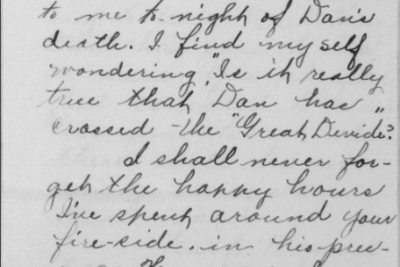 to me to-night of Dan's
death. I find myself
wondering, "Is it really
true that Dan has
crossed the "Great Devide"?
I shall never for-
get the happy hours
I've spent around your
fire-side. in his pres-